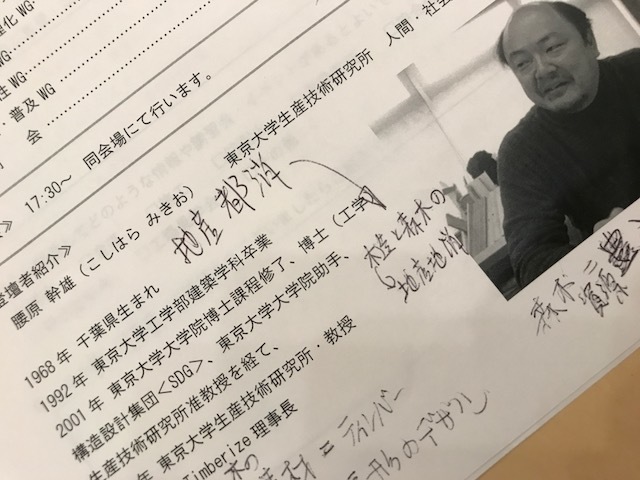 理化WG
性WG
普及WG
会
17:30～ 同会場にて行います。
登壇者紹介≫
腰原 幹雄（こしはら みきお） 東京大学生産技術研究所 人間・社会
地産都消
1968年 千葉県生まれ
1992年 東京大学工学部建築学科卒業
2001年 東京大学大学院博士課程修了、博士（工学）
構造設計集団<SDG>、東京大学大学院助手、
生産技術研究所准教授を経て、
年 東京大学生産技術研究所・教授
Timberize 理事長
木造と森木の
地産地消
森木 =
資源
木の
= ティンバー
形のデザイン